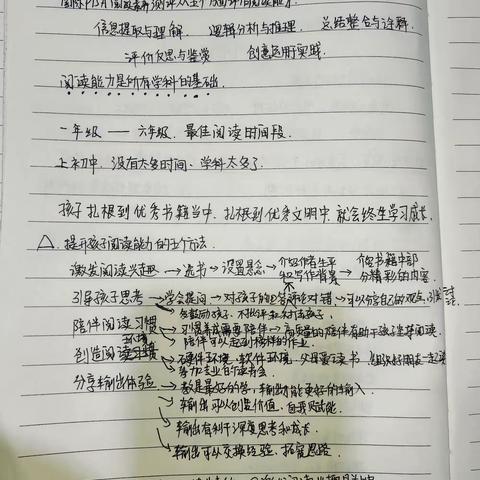 国际PISA阅读素养测评从五个方面评价阅读能力.
信息提取与理解、 逻辑分析与推理、 总结整合与诠释
评价反思与鉴赏 创意运用实践
阅读能力是所有学科的基础.
一年级 —— 六年级, 最佳阅读时间段.
上初中, 没有太多时间、学科太多了.
孩子扎根到优秀书籍当中, 扎根到优秀文明中, 就会终生学习成长.
△. 提升孩子阅读能力的五个方法.
激发阅读兴趣 → 选书 → 设置悬念 → 介绍作者生平和写作背景 → 介绍书籍中部分精彩的内容.
引导孩子思考 → 学会提问 → 对孩子的回答不评论对错 → 可以给自己的观点, 引发讨论.
多鼓励孩子, 不批评和打击孩子.
陪伴阅读习惯 → 习惯养成需要陪伴 → 高质量的陪伴有助于孩子坚持阅读.
陪伴可以起到榜样的作用
创造阅读环境 → 硬件环境、软件环境、父母要读书、组织好朋友一起读
参加专业的读书会
分享输出体验 → 教是最好的学, 输出才能更好的输入.
输出可以创造价值, 自我赋能.
输出有利于深度思考和成长.
输出可以交换经验、拓宽思路.